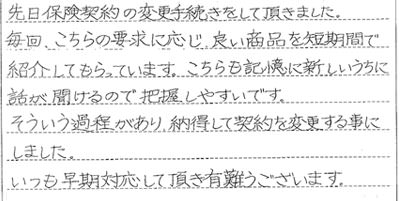 先日保険契約の変更手続きをして頂きました。
毎回、こちらの要求に応じ、良い商品を短期間で
紹介してもらっています。こちらも記憶に新しいうちに
話が、聞けるので把握しやすいです。
そういう過程があり、納得して契約を変更する事に
しました。
いつも早期対応して頂き有難うございます。